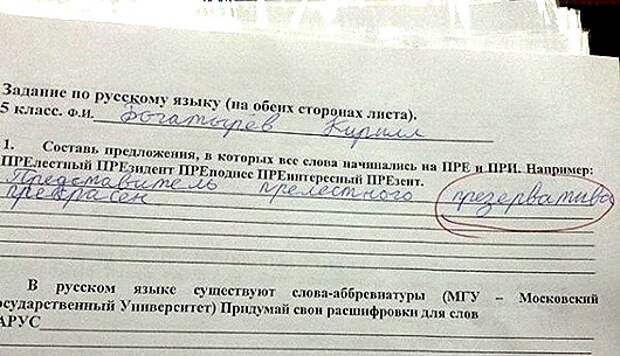 Задание по русскому языку (на обеих сторонах листа).
5 класс. Ф.И. Богатырев Кирилл
1. Составь предложения, в которых все слова начинались на ПРЕ и ПРИ. Например:
ПРЕлестный ПРЕзидент ПРЕподнес ПРЕинтересный ПРЕзент.
Представитель прелестного презерватива
прекрасен
В русском языке существуют слова-аббревиатуры (МГУ – Московский
осударственный Университет) Придумай свои расшифровки для слов
АРУС